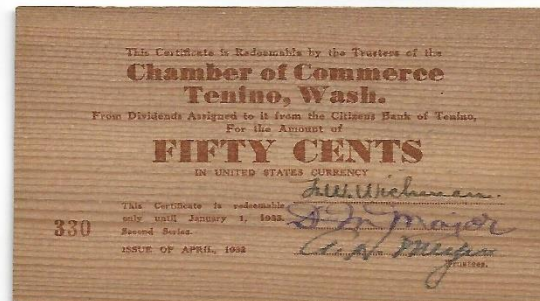 This Certificate is Redeemable by the Trustees of the
Chamber of Commerce
Tenino, Wash.
From Dividends Assigned to it from the Citizens Bank of Tenino,
For the Amount of
FIFTY CENTS
IN UNITED STATES CURRENCY
This Certificate is redeemable
only until January 1, 1933.
Second Series.
330
ISSUE OF APRIL, 1932
D. M. Major
Trustees.